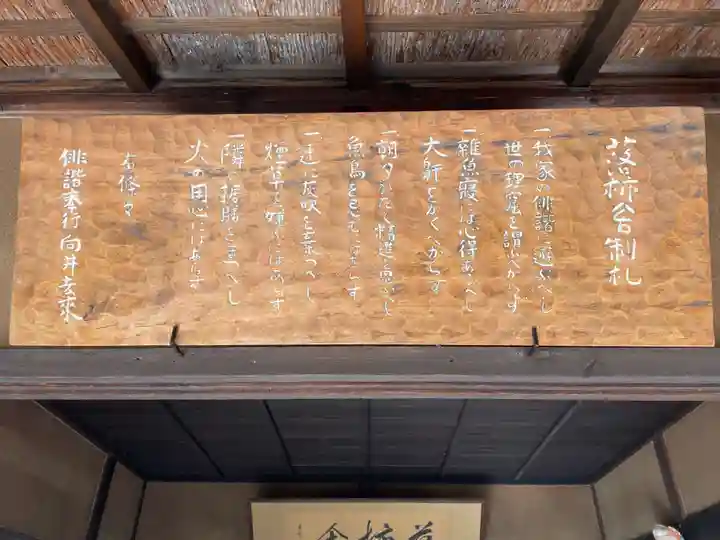 落柿舎制札
一我家の俳諧に遊ぶべし
世の理窟を謂ふべからず
一雑魚寝には心得あるべし
大鼾をかくべからず
一朝夕かたく精進を思ふべし
魚鳥を忌むにはあらず
一速に灰吹を棄つべし
煙草を嫌ふにはあらず
一隣の据膳をまつべし
火の用心にはあらず
右條々
俳諧奉行向井去来
落柿舎